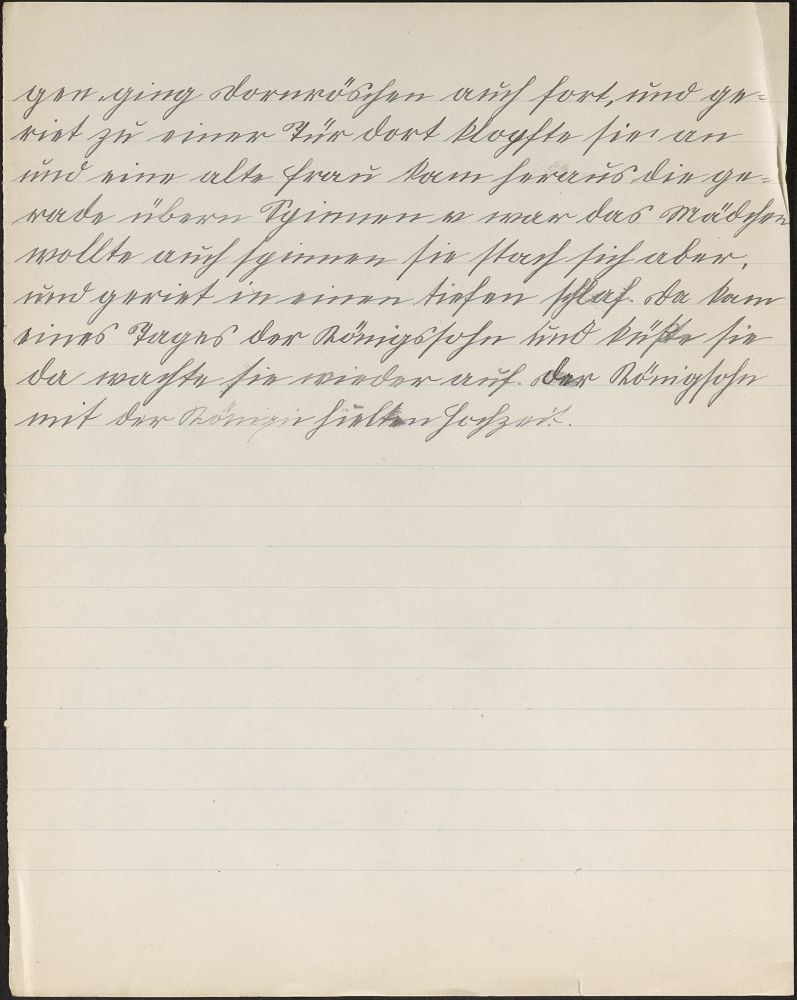 gen ging Dornröschen auch fort, und ge=
riet zu einer Tür dort klopfte sie an
und eine alte Frau kam heraus die ge=
rade übern Spinnen war das Mädchen
wollte auch spinnen sie stach sich aber,
und geriet in einen tiefen schlaf. Da kam
eines Tages der Königssohn und küßte sie
da wachte sie wieder auf. Der Königsohn
mit der Königin hielten Hochzeit.